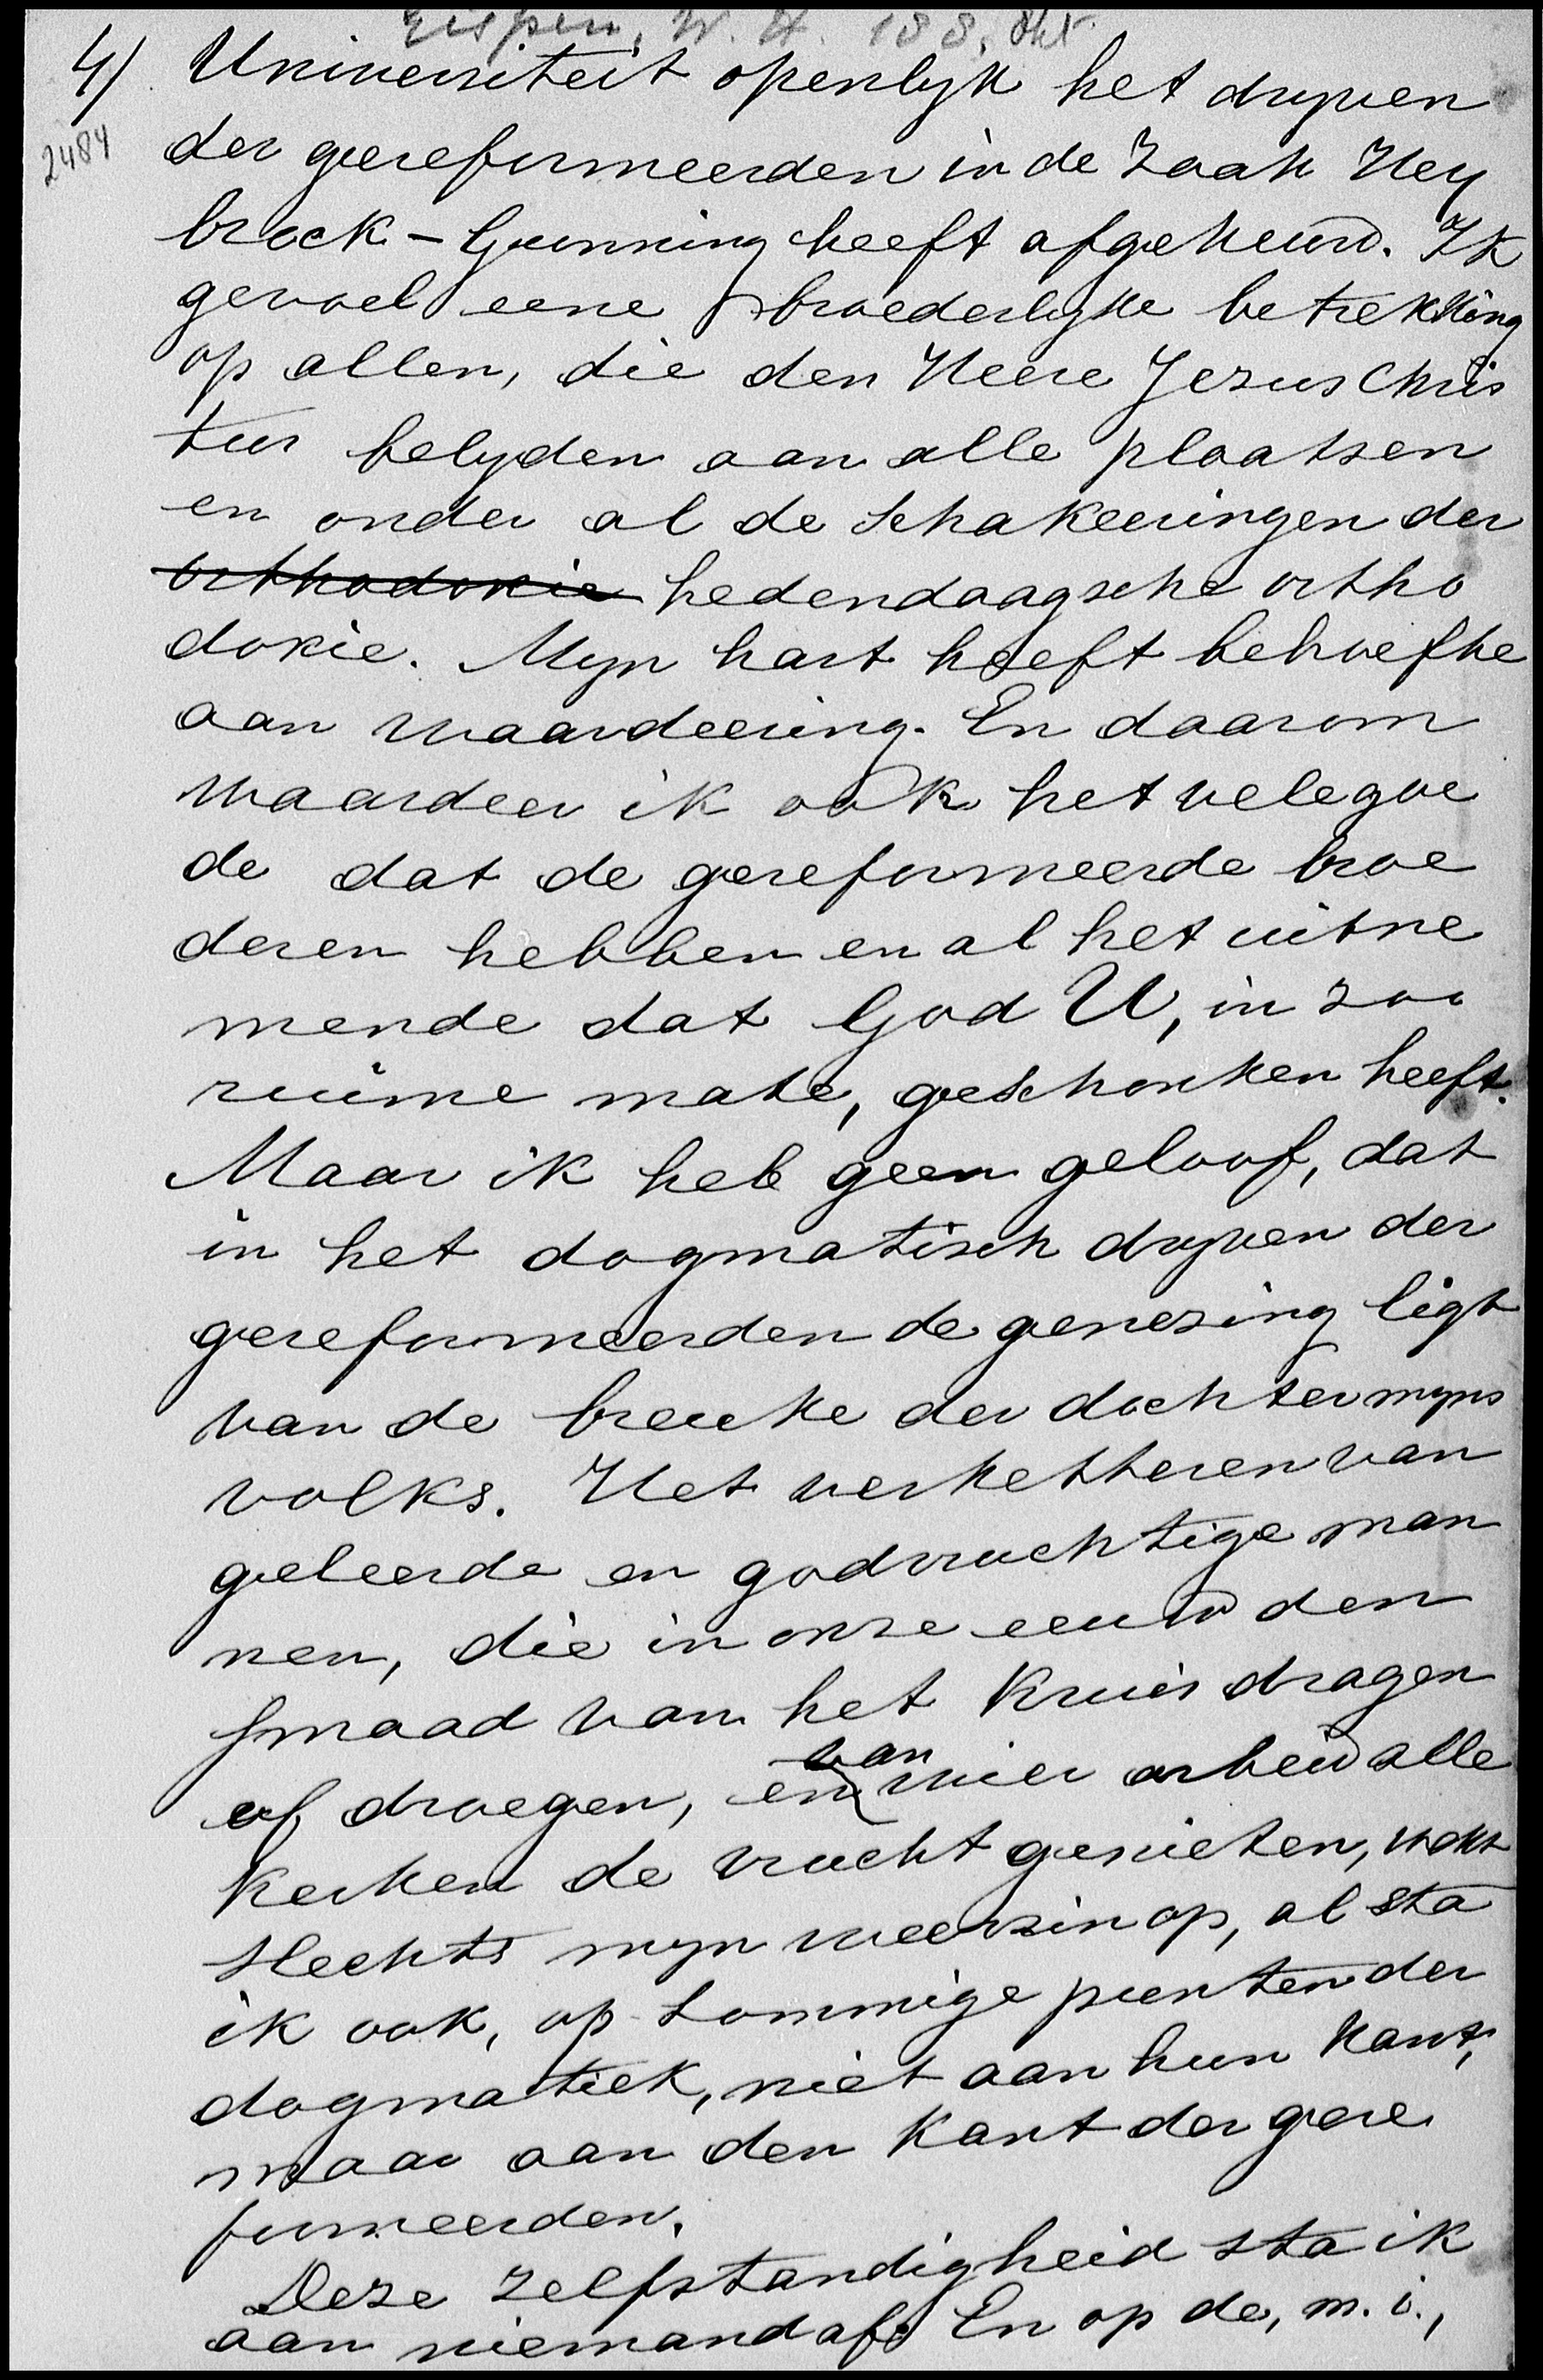 Eispen, W. H. 188. Okt.
4) Universiteit openlyk het dryven
2484
der gereformeerden in de zaak Hey
broek - Gunning heeft afgekeurd. Ik
gevoel eene broederlyke betrekking
op allen, die den Heere Jezus Chris
tus belyden aan alle plaatsen
en onder al de schakeeringen der
orthodoxie hedendaagsche ortho
doxie. Myn hart heeft behoefte
aan waardeering. En daarom
waardeer ik ook het vele goe
de dat de gereformeerde broe
deren hebben en al het uitne
mende dat God U, in zoo
ruime mate, geschonken heeft.
Maar ik heb geen geloof, dat
in het dogmatisch dryven der
gereformeerden de genezing ligt
van de breuke der dochter myns
volks. Het verketteren van
geleerde en godvruchtige man
nen, die in onze eeuw den
smaad van het kruis dragen
van
of droegen, en wier arbeid alle
kerken de vrucht genieten, wekt
slechts myn weerzin op, al sta
ik ook, op sommige punten der
dogmatiek, niet aan hun kant,
maar aan den kant der gere
formeerden.
Deze zelfstandigheid sta ik
aan niemand af. En op de, m. i.,